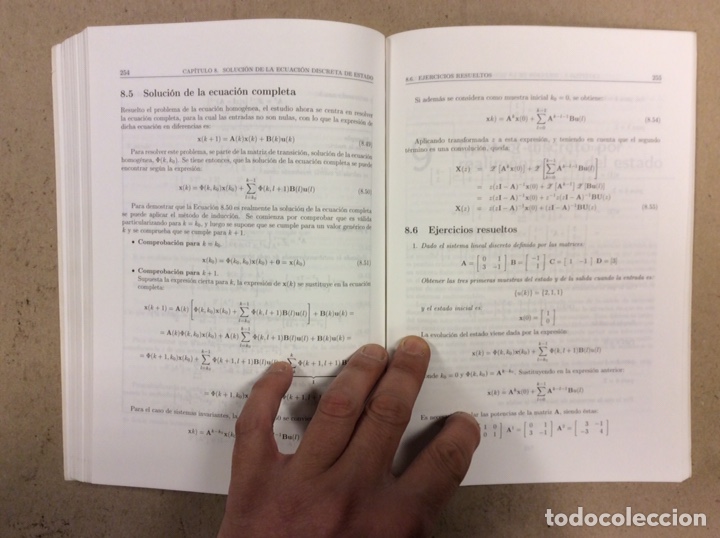 254 CAPÍTULO 8. SOLUCIÓN DE LA ECUACIÓN DISCRETA DE ESTADO
8.5 Solución de la ecuación completa
Resuelto el problema de la ecuación homogénea, el estudio ahora se centra en resolver
la ecuación completa, para la cual las entradas no son nulas, con lo que la expresión de
dicha ecuación en diferencias es:
x(k + 1) = A(k)x(k) + B(k)u(k) (8.49)
Para resolver este problema, se parte de la matriz de transición, solución de la ecuación
homogénea, Φ(k, k₀). Se tiene entonces, que la solución de la ecuación completa se puede
encontrar según la expresión:
x(k) = Φ(k, k₀)x(k₀) + ∑ Φ(k, l + 1)B(l)u(l) (8.50)
Para demostrar que la Ecuación 8.50 es realmente la solución de la ecuación completa
se puede aplicar el método de inducción. Se comienza por comprobar que es válida
particularizando para k = k₀, y luego se supone que se cumple para un valor genérico de
k y se comprueba que se cumple para k + 1.
• Comprobación para k = k₀.
x(k₀) = Φ(k₀, k₀)x(k₀) + 0 = x(k₀) (8.51)
• Comprobación para k + 1.
Supuesta la expresión cierta para k, la expresión de x(k) se sustituye en la ecuación
completa:
x(k + 1) = A(k) [Φ(k, k₀)x(k₀) + ∑ Φ(k, l + 1)B(l)u(l)] + B(k)u(k) =
= A(k)Φ(k, k₀)x(k₀) + A(k) ∑ Φ(k, l + 1)B(l)u(l) + B(k)u(k) =
= Φ(k + 1, k₀)x(k₀) + ∑ Φ(k + 1, l + 1)B(l)u(l)
= Φ(k + 1, k₀)x(k₀)
Para el caso de sistemas invariantes, la
8.6. EJERCICIOS RESUELTOS 255
Si además se considera como muestra inicial k₀ = 0, se obtiene:
x(k) = Aᵏx(0) + ∑ Aᵏ⁻ˡ⁻¹Bu(l) (8.54)
Aplicando transformada z a esta expresión, y teniendo en cuenta que el segundo
término es una convolución, queda:
X(z) = 𝒵 [Aᵏx(0)] + 𝒵 [∑ Aᵏ⁻ˡ⁻¹Bu(l)]
= z(zI − A)⁻¹x(0) + 𝒵 [Aᵏ⁻¹] 𝒵 [Bu(l)]
= z(zI − A)⁻¹x(0) + z⁻¹z(zI − A)⁻¹BU(z)
X(z) = z(zI − A)⁻¹x(0) + (zI − A)⁻¹BU(z) (8.55)
8.6 Ejercicios resueltos
1. Dado el sistema lineal discreto definido por las matrices:
A = [0 1; 3 −1] B = [−1; 1] C = [1 −1] D = [3]
Obtener las tres primeras muestras del estado y de la salida cuando la entrada es:
{u(k)} = {2, 1, 1}
y el estado inicial es:
x(0) = [1; 0]
La evolución del estado viene dada por la expresión:
x(k) = Φ(k, k₀)x(k₀) + ∑ Φ(k, l + 1)B(l)u(l)
k₀ = 0 y Φ(k, k₀) = Aᵏ⁻ᵏ⁰. Sustituyendo en la expresión anterior:
x(k) = Aᵏx(0) + ∑ Aᵏ⁻ˡ⁻¹Bu(l)
las potencias de la matriz A, siendo éstas:
[1 0; 0 1] A¹ = [0 1; 3 −1] A² = [3 −1; −3 4]
todocoleccion